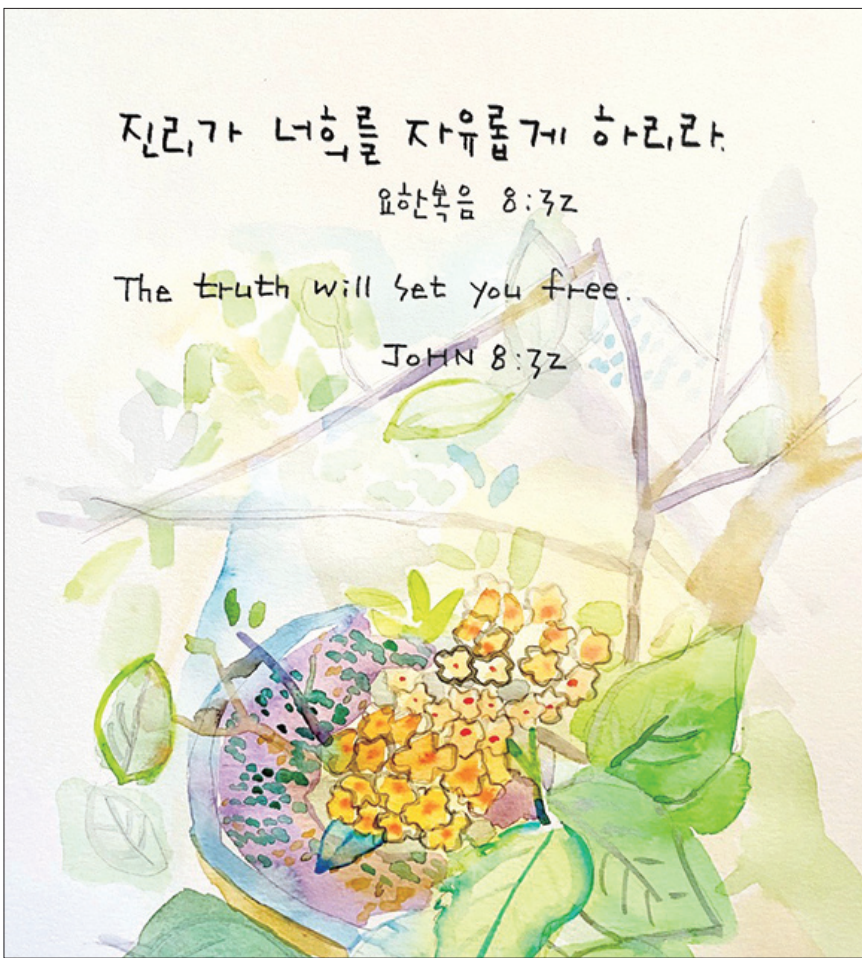 진리가 너희를 자유롭게 하리라.
요한복음 8:32
The truth will set you free.
JOHN 8:32